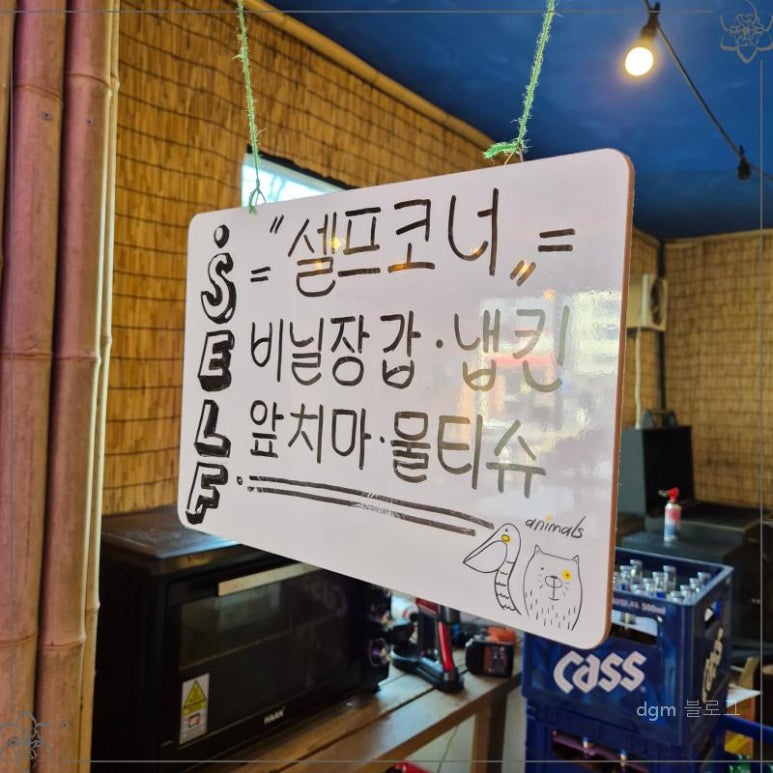 SELF
= "셀프코너" =
비닐장갑·냅킨
앞치마·물티슈
animals
HAAN
500ml
Cass
dgm 블로그